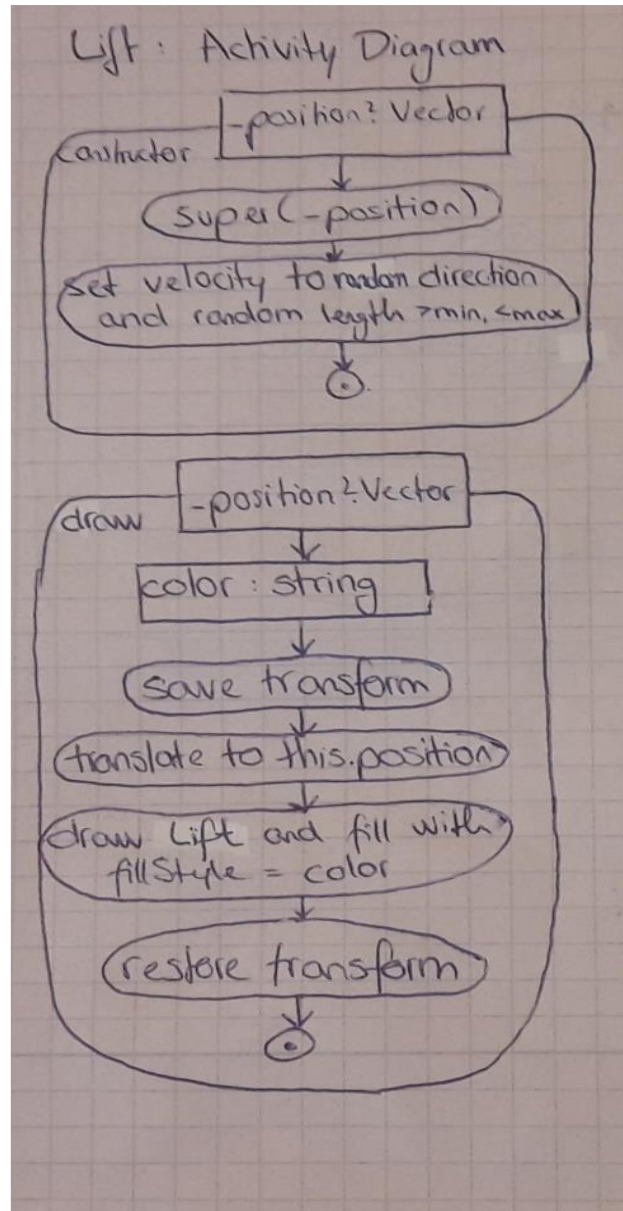 Lift : Activity Diagram
-position?: Vector
constructor
super(-position)
set velocity to random direction
and random length >min, <max
-position?: Vector
draw
color : string
save transform
translate to this.position
draw Lift and fill with
fillStyle = color
restore transform